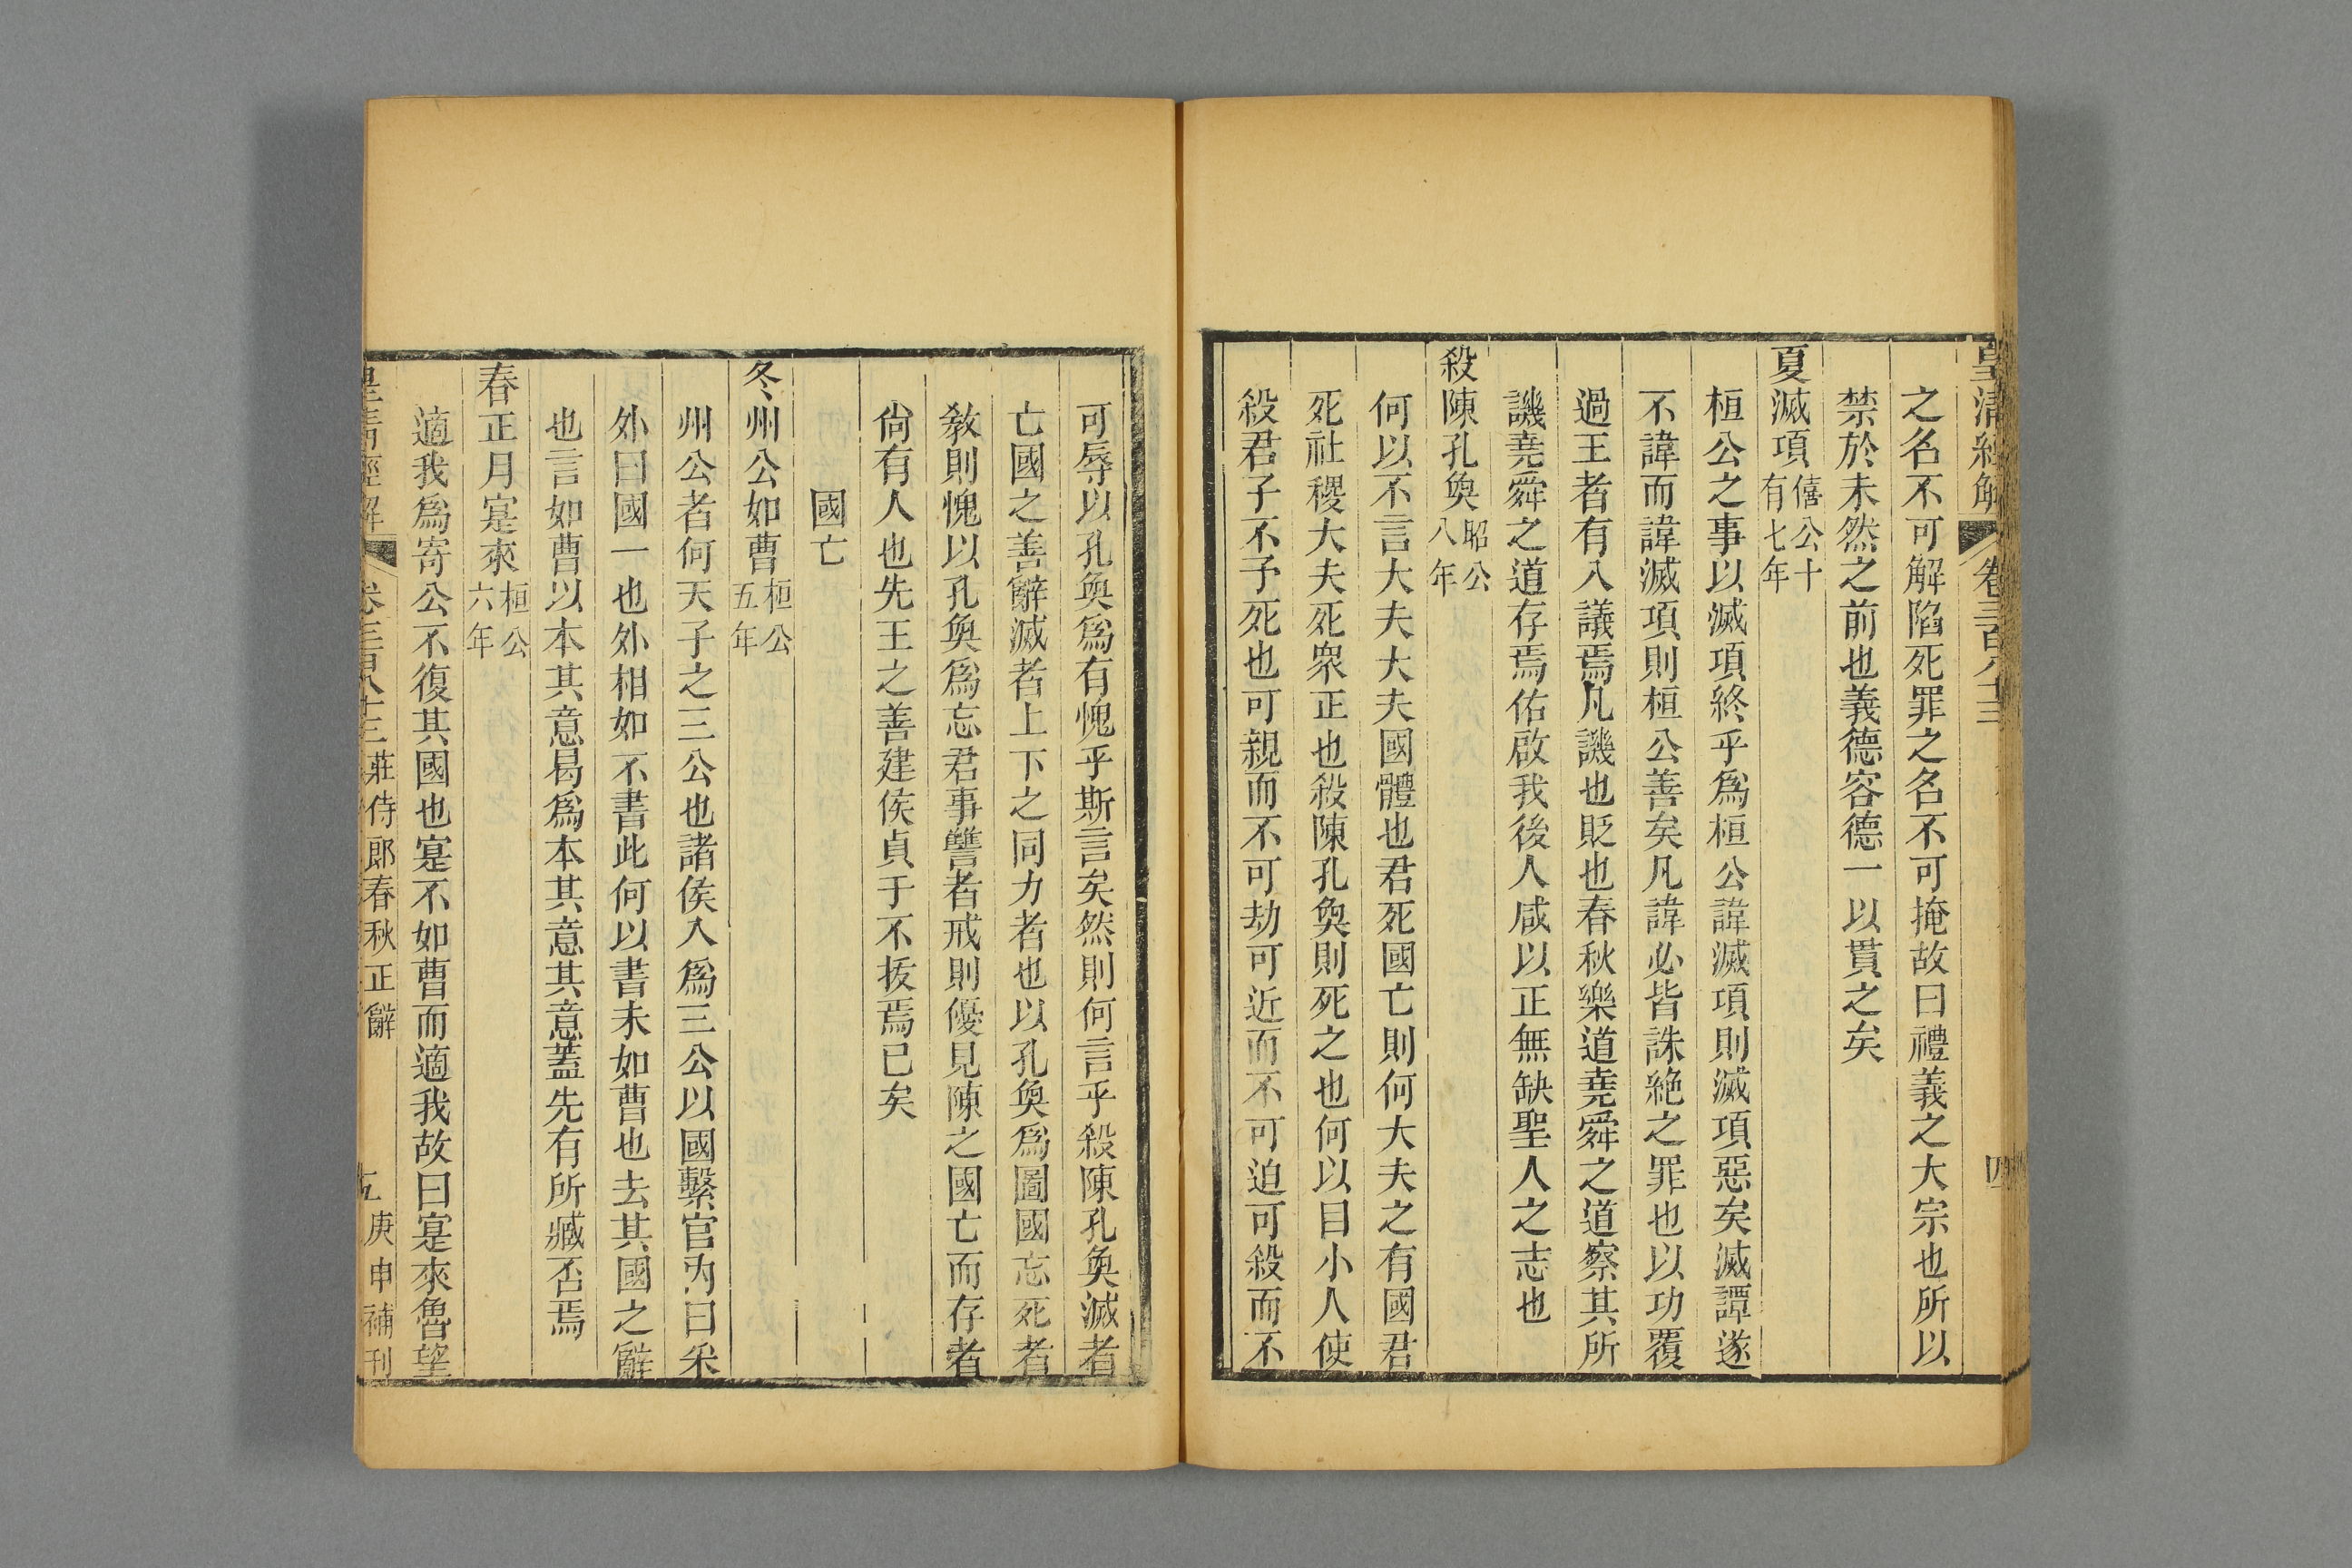 皇清經解 卷三百八十三 四
之名不可解陷死罪之名不可掩故曰禮義之大宗也所以
禁於未然之前也義德容德一以貫之矣
夏滅項僖公十有七年
桓公之事以滅項終乎爲桓公諱滅項則滅項惡矣滅譚遂
不諱而諱滅項則桓公善矣凡諱必皆誅絶之罪也以功覆
過王者有八議焉凡譏也貶也春秋樂道堯舜之道察其所
譏堯舜之道存焉佑啟我後人咸以正無缺聖人之志也
殺陳孔奐昭公八年
何以不言大夫大夫國體也君死國亡則何大夫之有國君
死社稷大夫死眾正也殺陳孔奐則死之也何以目小人使
殺君子不予死也可親而不可劫可近而不可迫可殺而不
可辱以孔奐爲有愧乎斯言矣然則何言乎殺陳孔奐滅者
亡國之善辭滅者上下之同力者也以孔奐爲圖國忘死者
敎則愧以孔奐爲忘君事讐者戒則優見陳之國亡而存者
尙有人也先王之善建侯貞于不拔焉已矣
國亡
冬州公如曹桓公五年
州公者何天子之三公也諸侯入爲三公以國繫官內曰采
外曰國一也外相如不書此何以書未如曹也去其國之辭
也言如曹以本其意曷爲本其意其意蓋先有所臧否焉
春正月寔來桓公六年
適我爲寄公不復其國也寔不如曹而適我故曰寔來魯望
皇清經解 卷三百八十三 莊侍郎春秋正辭 庚申補刊